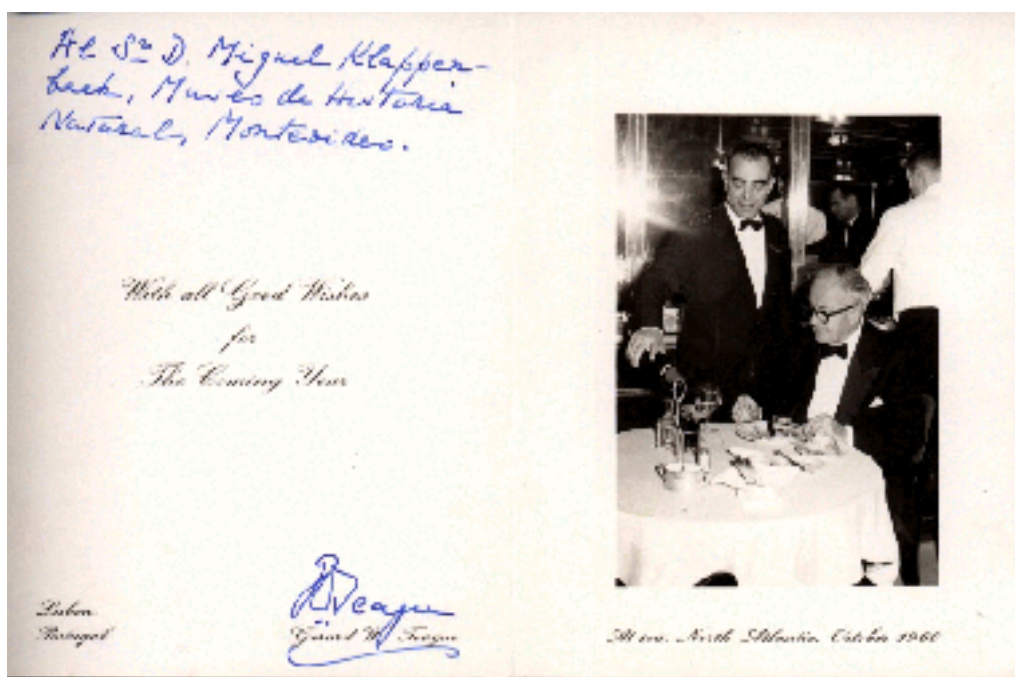 Al Sr D. Miguel Klappen-
bach, Museo de Historia
Natural, Montevideo.
With all Good Wishes
for
The Coming Year
Lisbon
Portugal
Teague
Gerard W. Teague
At sea. North Atlantic. October 1960